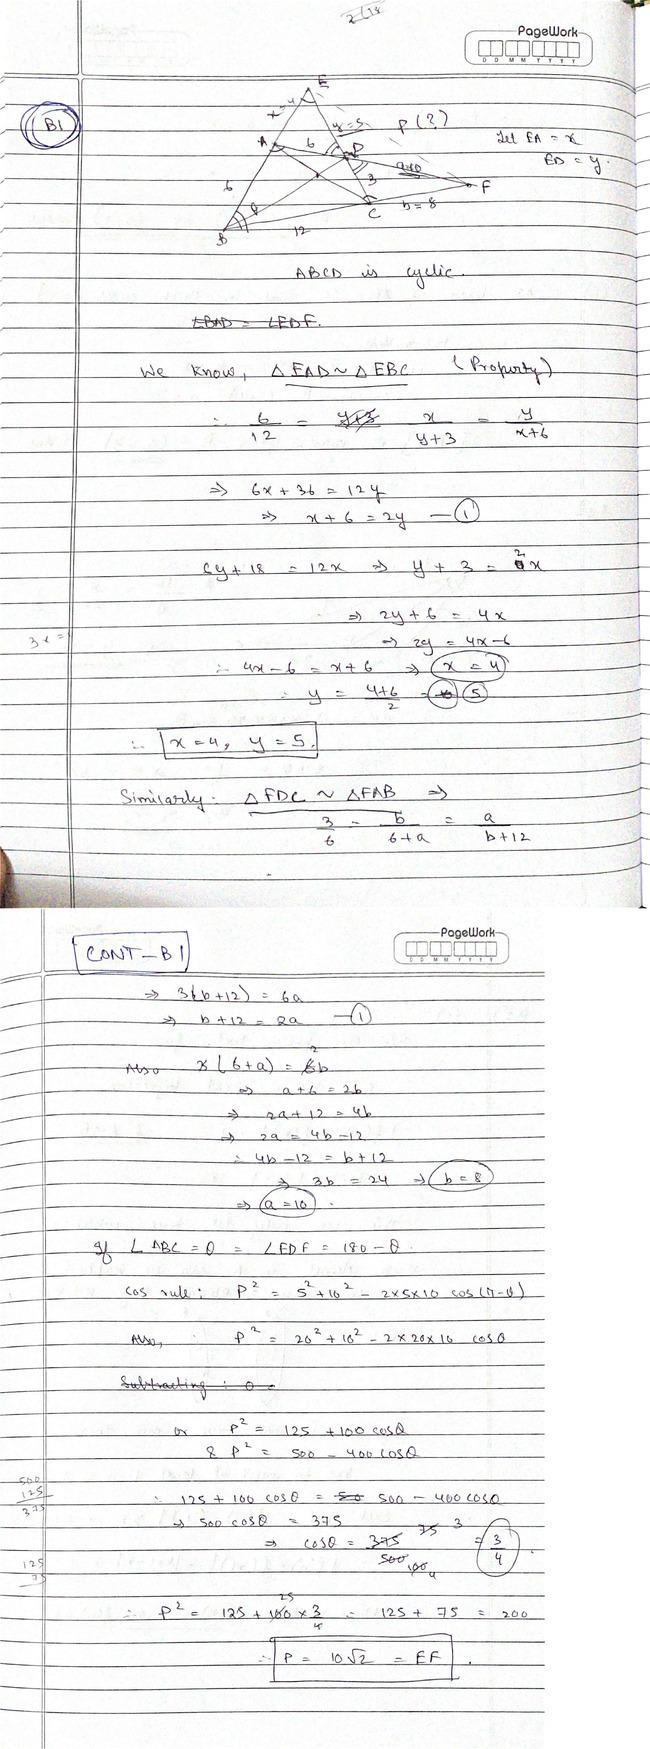 2/18
PageWork
D D M M Y Y Y Y
B1
E
x = 4
y = 5
P (?)
Let EA = x
ED = y.
A
6
D
a=10
6
3
F
θ
C
b = 8
B
12
ABCD is cyclic.
∠BAD = ∠EDF.
We know, △EAD ~ △EBC (Property)
∴ 6/12 = y+3 x/y+3 = y/x+6
⇒ 6x + 36 = 12y
⇒ x + 6 = 2y — ①
6y + 18 = 12x ⇒ y + 3 = 2x
⇒ 2y + 6 = 4x
3x =
⇒ 2y = 4x-6
∴ 4x - 6 = x + 6 ⇒ x = 4
∴ y = 4+6/2 = 5
∴ x = 4, y = 5.
Similarly: △FDC ~ △FAB ⇒
3/6 = b/6+a = a/b+12
CONT - B1
PageWork
D D M M Y Y Y Y
⇒ 3(b+12) = 6a
⇒ b + 12 = 2a — ①
Also x(6+a) = 6b 2
⇒ a + 6 = 2b
⇒ 2a + 12 = 4b
⇒ 2a = 4b - 12
∴ 4b - 12 = b + 12
⇒ 3b = 24 ⇒ b = 8
⇒ a = 10.
If ∠ABC = θ = ∠EDF = 180 - θ.
Cos rule: P² = 5² + 10² - 2×5×10 cos(π-θ)
Also, P² = 20² + 10² - 2×20×10 cosθ
Subtracting : 0 =
or P² = 125 + 100 cosθ
& P² = 500 - 400 cosθ
500
125
375
∴ 125 + 100 cosθ = 50 500 - 400 cosθ
⇒ 500 cosθ = 375
⇒ cosθ = 375/500 75/100 3/4 = 3/4.
125
75
∴ P² = 125 + 100 25 × 3/4 = 125 + 75 = 200
∴ P = 10√2 = EF.